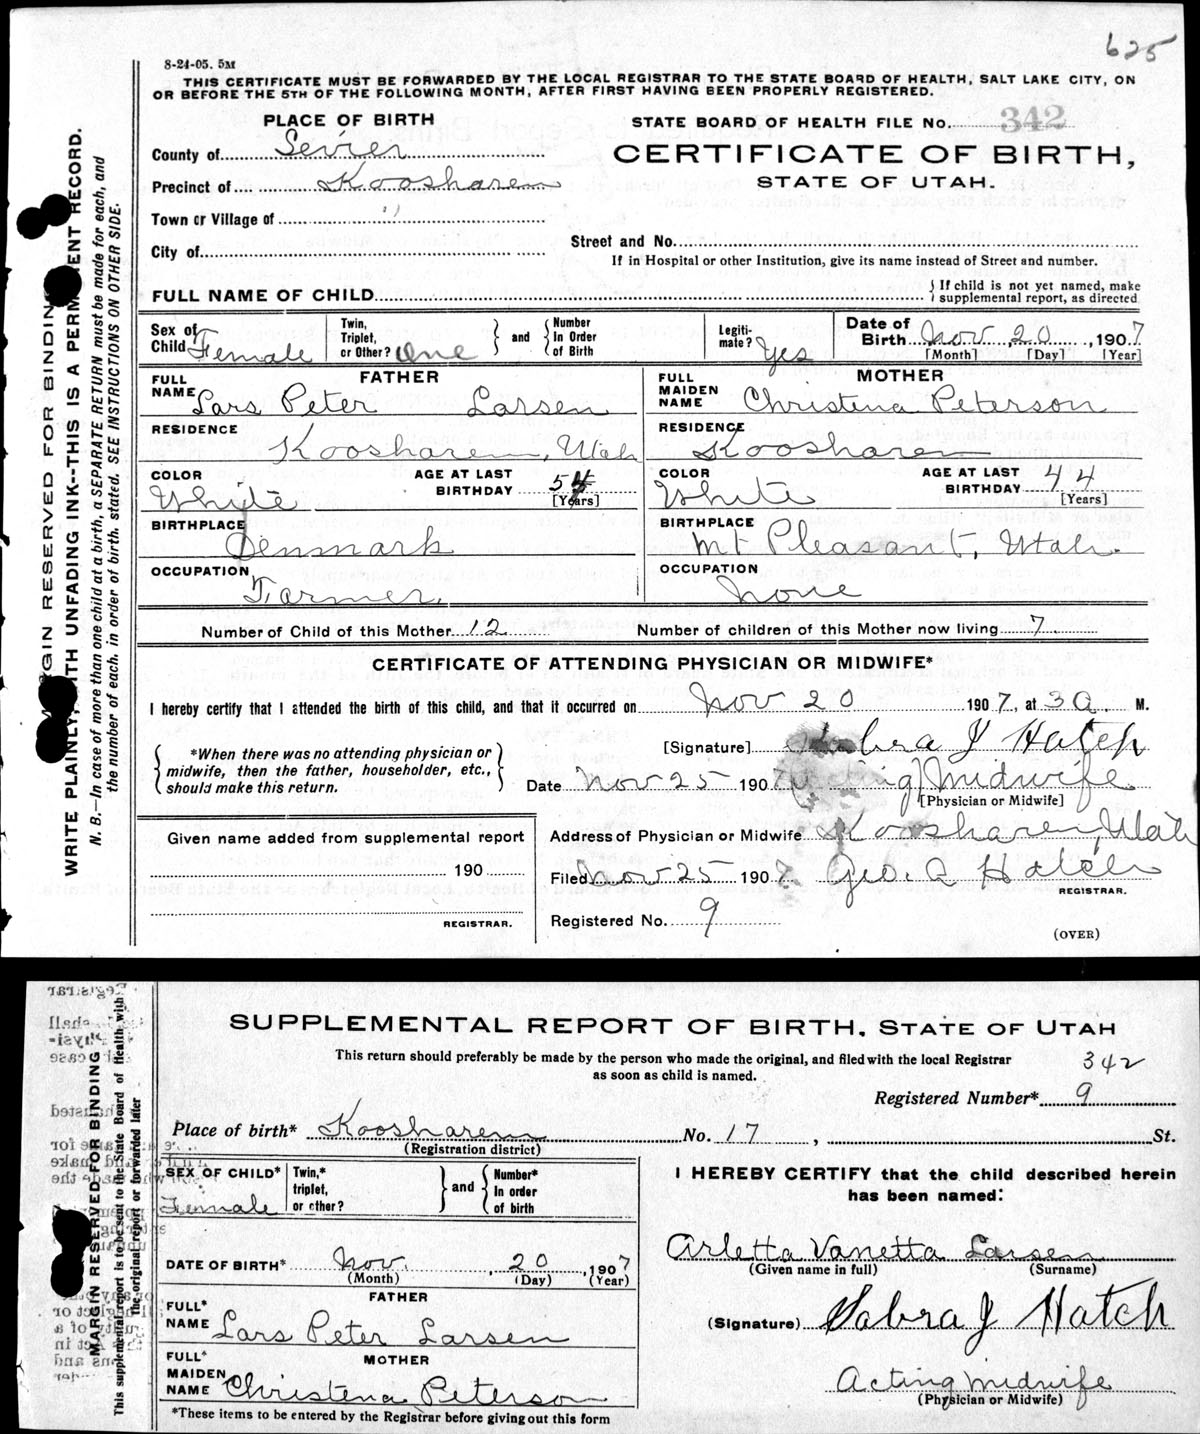 625
8-24-05. 5M
THIS CERTIFICATE MUST BE FORWARDED BY THE LOCAL REGISTRAR TO THE STATE BOARD OF HEALTH, SALT LAKE CITY, ON
OR BEFORE THE 5TH OF THE FOLLOWING MONTH, AFTER FIRST HAVING BEEN PROPERLY REGISTERED.
PLACE OF BIRTH
STATE BOARD OF HEALTH FILE No. 342
County of Sevier
CERTIFICATE OF BIRTH,
Precinct of Koosharem
STATE OF UTAH.
Town or Village of "
City of
Street and No.
If in Hospital or other Institution, give its name instead of Street and number.
FULL NAME OF CHILD
If child is not yet named, make
supplemental report, as directed
Sex of Child Female
Twin, Triplet, or Other? One
and
Number In Order of Birth
Legiti-mate? Yes
Date of Birth Nov 20, 1907
[Month] [Day] [Year]
FATHER
FULL NAME Lars Peter Larsen
RESIDENCE Koosharem, Utah
COLOR White
AGE AT LAST BIRTHDAY 54
[Years]
BIRTHPLACE Denmark
OCCUPATION Farmer.
MOTHER
FULL MAIDEN NAME Christena Peterson
RESIDENCE Koosharem
COLOR White
AGE AT LAST BIRTHDAY 44
[Years]
BIRTHPLACE Mt Pleasant, Utah.
OCCUPATION None
Number of Child of this Mother 12
Number of children of this Mother now living 7
CERTIFICATE OF ATTENDING PHYSICIAN OR MIDWIFE*
I hereby certify that I attended the birth of this child, and that it occurred on Nov 20 1907, at 3 a. M.
*When there was no attending physician or
midwife, then the father, householder, etc.,
should make this return.
[Signature] Sabra J Hatch
Date Nov 25 1907 Acting Midwife
[Physician or Midwife]
Given name added from supplemental report
190
REGISTRAR.
Address of Physician or Midwife Koosharem, Utah
Filed Nov 25 1907 Geo. A Hatch
REGISTRAR.
Registered No. 9
(OVER)
MARGIN RESERVED FOR BINDING
WRITE PLAINLY, WITH UNFADING INK--THIS IS A PERMANENT RECORD.
N. B.—In case of more than one child at a birth, a SEPARATE RETURN must be made for each, and
the number of each, in order of birth, stated. SEE INSTRUCTIONS ON OTHER SIDE.
SUPPLEMENTAL REPORT OF BIRTH, STATE OF UTAH
This return should preferably be made by the person who made the original, and filed with the local Registrar
as soon as child is named.
342
Registered Number* 9
Place of birth* Koosharem No. 17, St.
(Registration district)
SEX OF CHILD* Female
Twin,* triplet, or other?
and
Number* In order of birth
DATE OF BIRTH* Nov. 20, 1907
(Month) (Day) (Year)
FATHER
FULL* NAME Lars Peter Larsen
MOTHER
FULL* MAIDEN NAME Christena Peterson
*These items to be entered by the Registrar before giving out this form
I HEREBY CERTIFY that the child described herein
has been named:
Arletta Vanetta Larsen
(Given name in full) (Surname)
(Signature) Sabra J Hatch
Acting Midwife
(Physician or Midwife)
MARGIN RESERVED FOR BINDING
This supplemental report is to be sent to the State Board of Health with
the original report or forwarded later